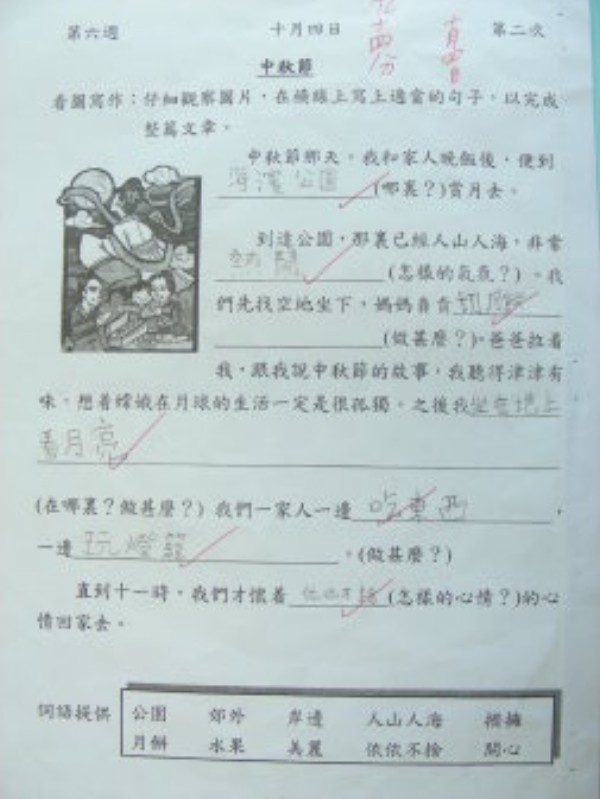 第六週 十月四日 第二次
十四分
十月四日
中秋節
看圖寫作：仔細觀察圖片，在橫線上寫上適當的句子，以完成
整篇文章。
中秋節那天，我和家人晚飯後，便到
海濱公園(哪裏？)賞月去。
到達公園，那裏已經人山人海，非常
熱鬧(怎樣的氣氛？)。我
們先找空地坐下，媽媽負責切月餅
(做甚麼？)。爸爸拉着
我，跟我說中秋節的故事，我聽得津津有
味，想着嫦娥在月球的生活一定是很孤獨。之後我坐在地上
看月亮
(在哪裏？做甚麼？) 我們一家人一邊吃東西，
一邊玩燈籠。(做甚麼？)
直到十一時，我們才懷着依依不捨(怎樣的心情？)的心
情回家去。
詞語提供 公園 郊外 岸邊 人山人海 擠擁
月餅 水果 美麗 依依不捨 開心